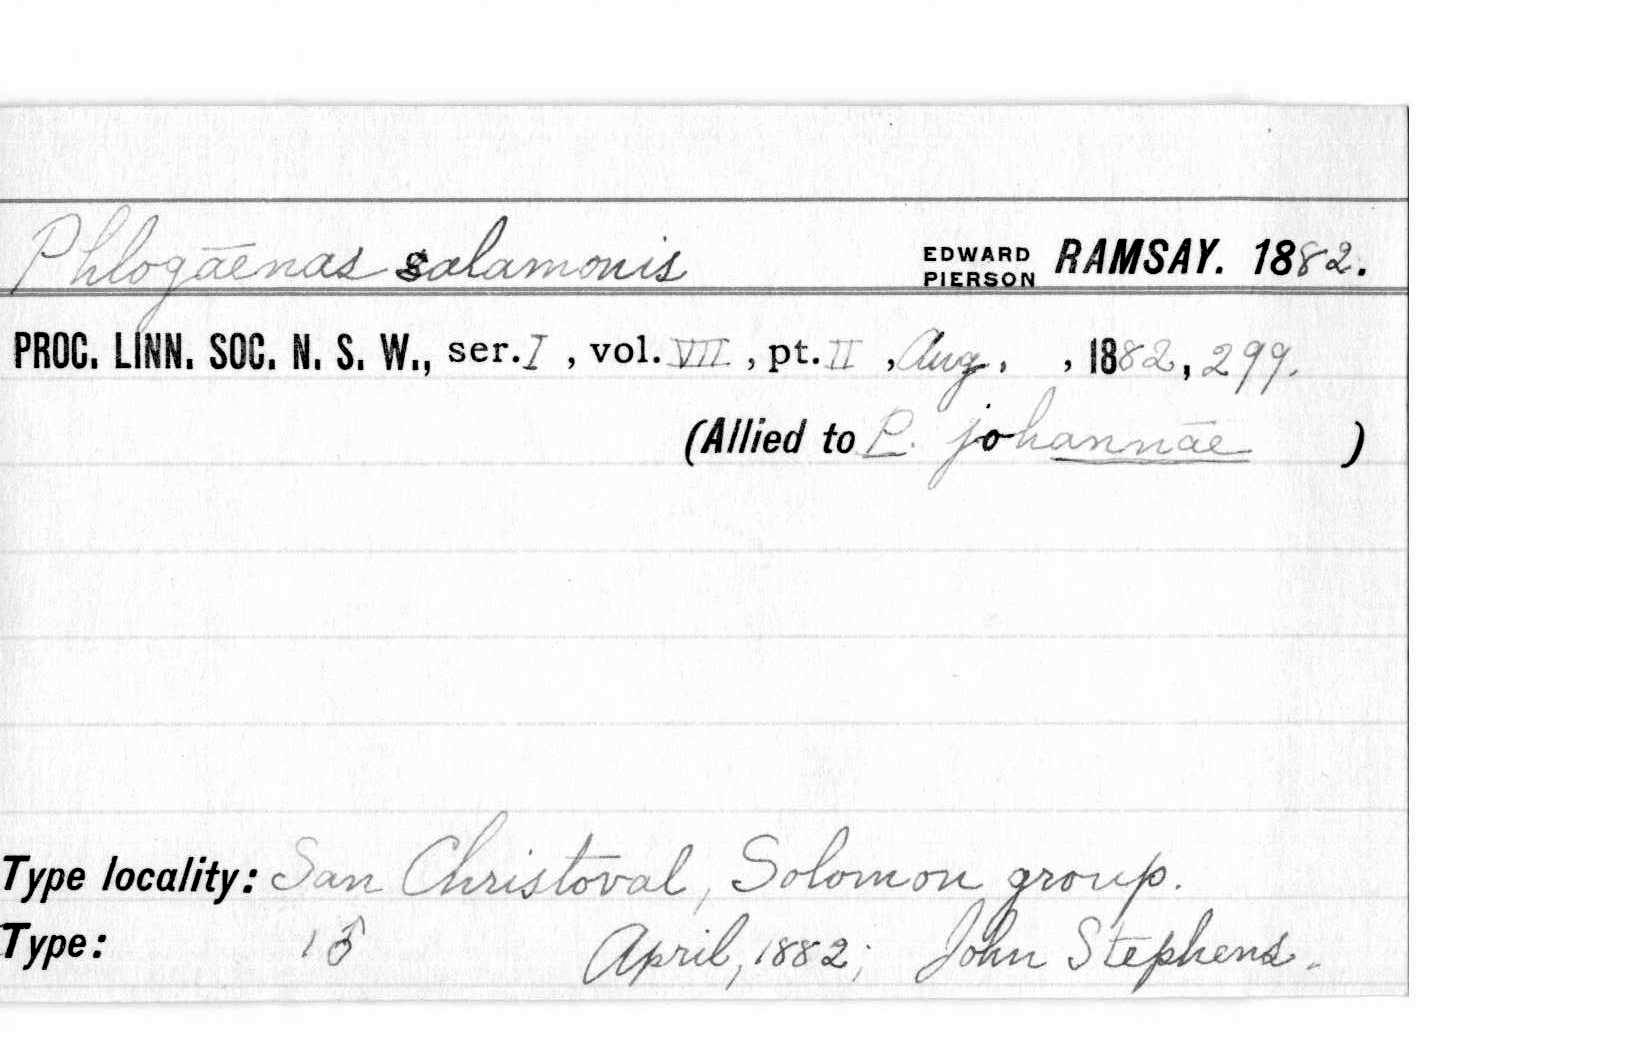 Phlogāenas salamonis EDWARD PIERSON RAMSAY. 1882.
PROC. LINN. SOC. N. S. W., ser. I , vol. VII , pt. II , Aug. , 1882, 299.
(Allied to P. johannāe )
Type locality: San Christoval, Solomon group.
Type: 1 ♂ April, 1882; John Stephens.